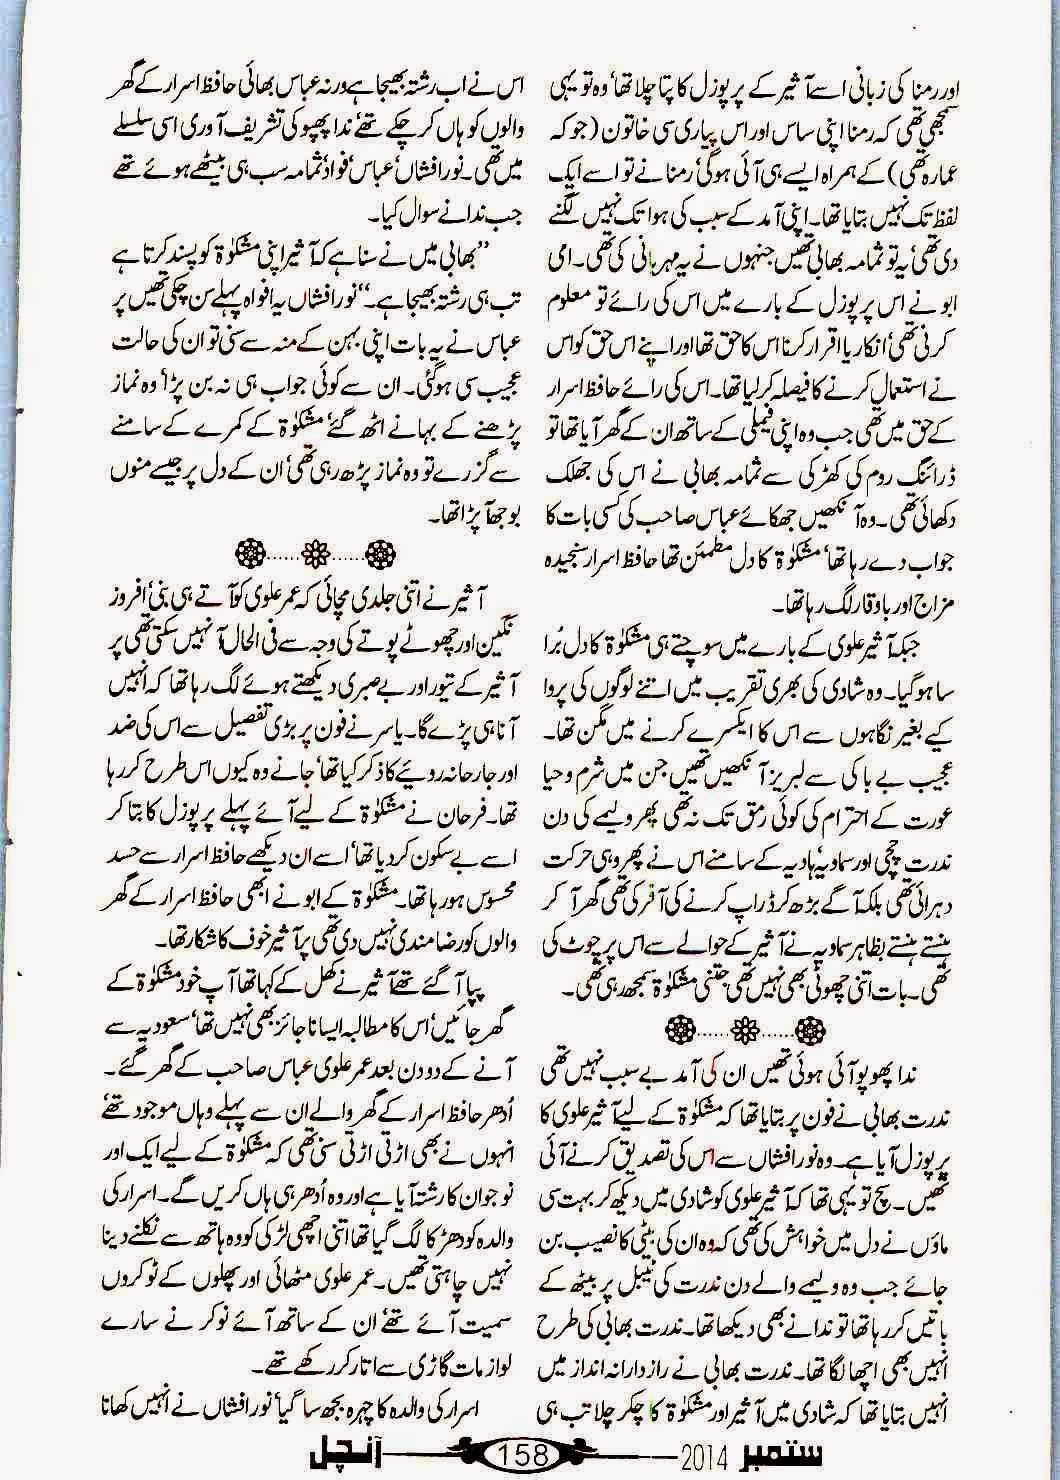 اور رمنا کی زبانی اسے آثیر کے پرپوزل کا پتا چلا تھا‘ وہ تو یہی
سمجھی تھی کہ رمنا اپنی ساس اور اس پیاری سی خاتون (جو کہ
عمارہ تھی) کے ہمراہ ایسے ہی آئی ہوگی‘ رمنا نے تو اسے ایک
لفظ تک نہیں بتایا تھا۔ اپنی آمد کے سبب کی ہوا تک نہیں لگنے
دی تھی‘ یہ تو ثمامہ بھابی تھیں جنہوں نے یہ مہربانی کی تھی۔ امی
ابو نے اس پرپوزل کے بارے میں اس کی رائے تو معلوم
کرنی تھی‘ انکار یا اقرار کرنا اس کا حق تھا اور اپنے اس حق کو اس
نے استعمال کرنے کا فیصلہ کرلیا تھا۔ اس کی رائے حافظ اسرار
کے حق میں تھی جب وہ اپنی فیملی کے ساتھ ان کے گھر آیا تھا تو
ڈرائنگ روم کی کھڑکی سے ثمامہ بھابی نے اس کی جھلک
دکھائی تھی۔ وہ آنکھیں جھکائے عباس صاحب کی کسی بات کا
جواب دے رہا تھا‘ مشکوٰۃ کا دل مطمئن تھا حافظ اسرار سنجیدہ
مزاج اور باوقار لگ رہا تھا۔
جبکہ آثیر علوی کے بارے میں سوچتے ہی مشکوٰۃ کا دل بُرا
سا ہوگیا۔ وہ شادی کی بھری تقریب میں اتنے لوگوں کی پروا
کیے بغیر نگاہوں سے اس کا ایکسرے کرنے میں مگن تھا۔
عجیب بے باکی سے لبریز آنکھیں تھیں جن میں شرم و حیا
عورت کے احترام کی کوئی رمق تک نہ تھی پھر ولیمے کی دن
ندرت چچی اور سماویہ‘ ہادیہ کے سامنے اس نے پھر وہی حرکت
دہرائی تھی بلکہ آگے بڑھ کر ڈراپ کرنے کی آفر کی تھی‘ گھر آ کر
ہنستے ہنستے بظاہر سماویہ نے آثیر کے حوالے سے اس پر چوٹ کی
تھی۔ بات اتنی چھوٹی بھی نہیں تھی جتنی مشکوٰۃ سمجھ رہی تھی۔
ندا پھوپو آئی ہوئی تھیں ان کی آمد بے سبب نہیں تھی
ندرت بھابی نے فون پر بتایا تھا کہ مشکوٰۃ کے لیے آثیر علوی کا
پرپوزل آیا ہے۔ وہ نور افشاں سے اس کی تصدیق کرنے آئی
تھیں۔ سچ تو یہی تھا کہ آثیر علوی کو شادی میں دیکھ کر بہت سی
ماؤں نے دل میں خواہش کی تھی کہ وہ ان کی بیٹی کا نصیب بن
جائے جب وہ ولیمے والے دن ندرت کی ٹیبل پر بیٹھ کے
باتیں کر رہا تھا تو ندا نے بھی دیکھا تھا۔ ندرت بھابی کی طرح
انہیں بھی اچھا لگا تھا۔ ندرت بھابی نے رازدارانہ انداز میں
انہیں بتایا تھا کہ شادی میں آثیر اور مشکوٰۃ کا چکر چلا تب ہی
اس نے اب رشتہ بھیجا ہے ورنہ عباس بھائی حافظ اسرار کے گھر
والوں کو ہاں کر چکے تھے‘ ندا پھپو کی تشریف آوری اسی سلسلے
میں تھی۔ نور افشاں‘ عباس‘ فواد‘ ثمامہ سب ہی بیٹھے ہوئے تھے
جب ندا نے سوال کیا۔
”بھابی میں نے سنا ہے کہ آثیر اپنی مشکوٰۃ کو پسند کرتا ہے
تب ہی رشتہ بھیجا ہے۔“ نور افشاں یہ افواہ پہلے سن چکی تھیں پر
عباس نے یہ بات اپنی بہن کے منہ سے سنی تو ان کی حالت
عجیب سی ہوگئی۔ ان سے کوئی جواب ہی نہ بن پڑا‘ وہ نماز
پڑھنے کے بہانے اٹھ گئے‘ مشکوٰۃ کے کمرے کے سامنے
سے گزرے تو وہ نماز پڑھ رہی تھی‘ ان کے دل پر جیسے منوں
بوجھ آپڑا تھا۔
آثیر نے اتنی جلدی مچائی کہ عمر علوی کو آتے ہی بنی‘ افروز
نگین اور چھوٹے پوتے کی وجہ سے فی الحال آ نہیں سکتی تھی پر
آثیر کے تیور اور بے صبری دیکھتے ہوئے لگ رہا تھا کہ انہیں
آنا ہی پڑے گا۔ یاسر نے فون پر بڑی تفصیل سے اس کی ضد
اور جارحانہ رویے کا ذکر کیا تھا‘ جانے وہ کیوں اس طرح کررہا
تھا۔ فرحان نے مشکوٰۃ کے لیے آئے پہلے پرپوزل کا بتا کر
اسے بے سکون کردیا تھا‘ اسے ان دیکھے حافظ اسرار سے حسد
محسوس ہورہا تھا۔ مشکوٰۃ کے ابو نے ابھی حافظ اسرار کے گھر
والوں کو رضامندی نہیں دی تھی پر آثیر خوف کا شکار تھا۔
پپا آگئے تھے آثیر نے کھل کے کہا تھا آپ خود مشکوٰۃ کے
گھر جائیں‘ اس کا مطالبہ ایسا ناجائز بھی نہیں تھا‘ سعودیہ سے
آنے کے دو دن بعد عمر علوی عباس صاحب کے گھر گئے۔
اُدھر حافظ اسرار کے گھر والے ان سے پہلے وہاں موجود تھے‘
انہوں نے بھی اڑتی اڑتی سنی تھی کہ مشکوٰۃ کے لیے ایک اور
نوجوان کا رشتہ آیا ہے اور وہ اُدھر ہی ہاں کریں گے۔ اسرار کی
والدہ کو دھڑکا لگ گیا تھا اتنی اچھی لڑکی کو وہ ہاتھ سے نکلنے دینا
نہیں چاہتی تھیں۔ عمر علوی مٹھائی اور پھلوں کے ٹوکروں
سمیت آئے تھے‘ ان کے ساتھ آئے نوکر نے سارے
لوازمات گاڑی سے اتار کر رکھے تھے۔
اسرار کی والدہ کا چہرہ بجھ سا گیا‘ نور افشاں نے انہیں کھانا
ستمبر 2014 158 آنچل